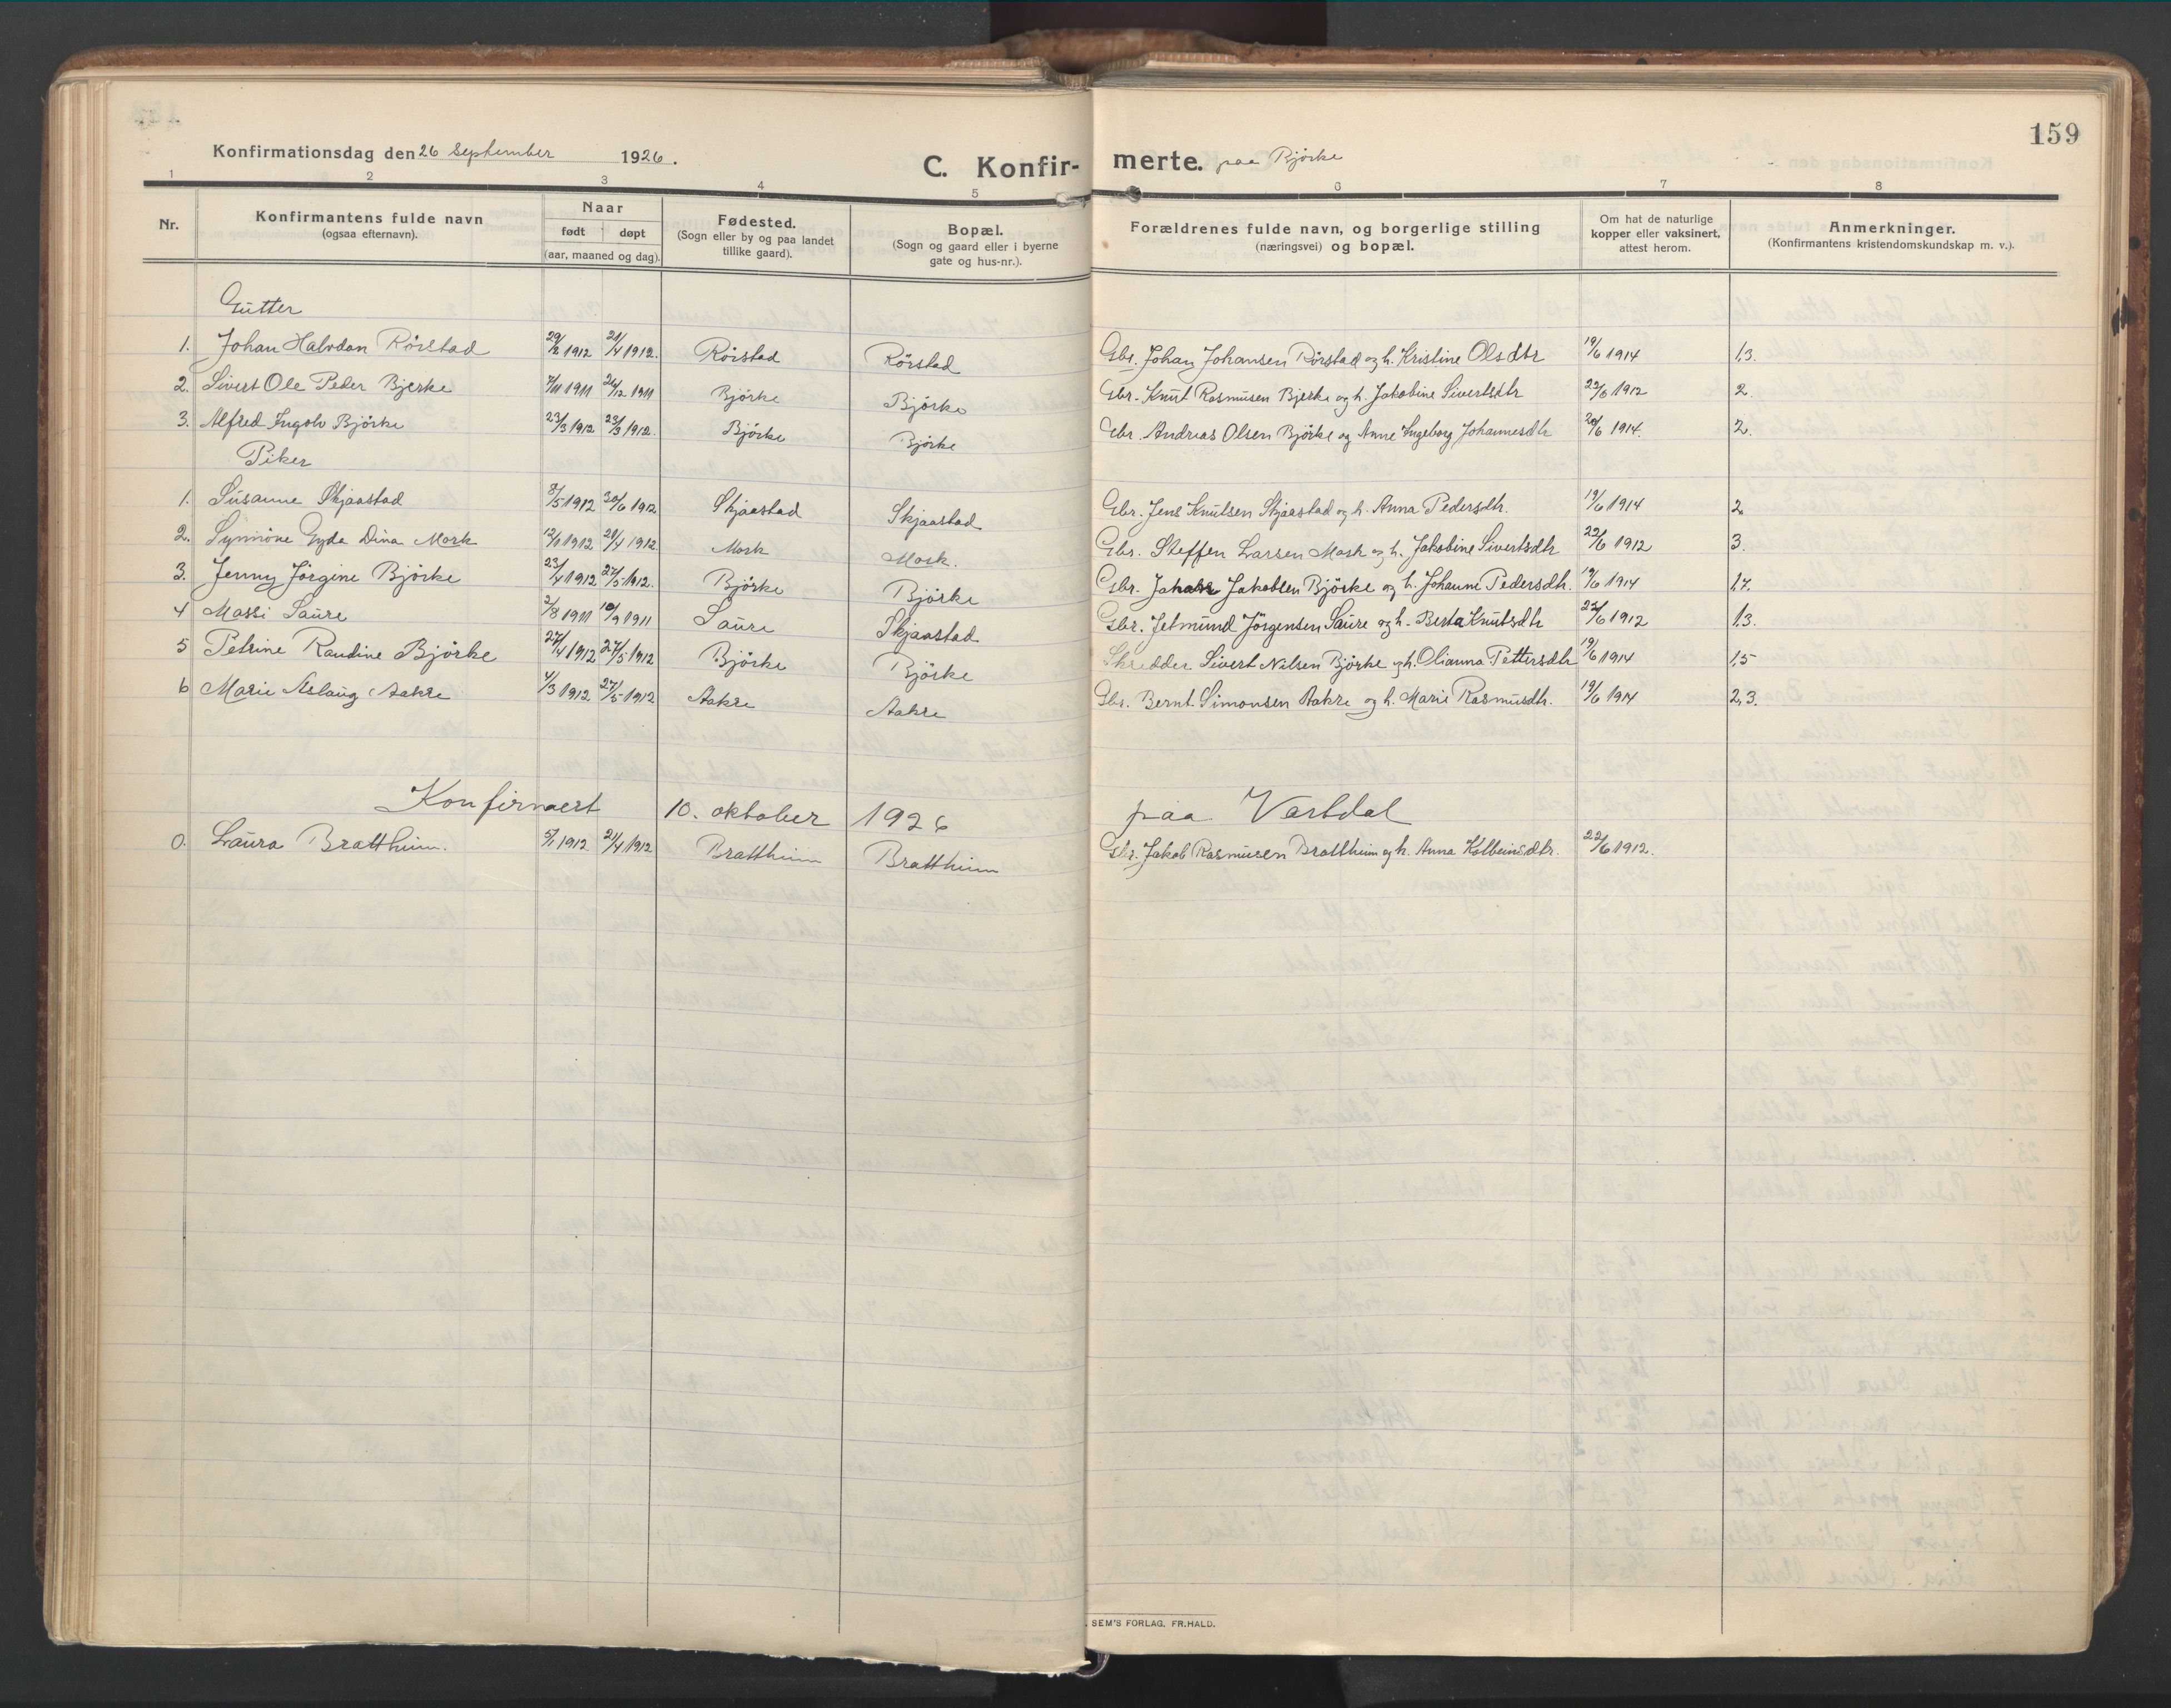 159
Konfirmationsdag den 26 September 1926. C. Konfirmerte. paa Bjørke
1 2 3 4 5 6 7 8
Nr. Konfirmantens fulde navn (ogsaa efternavn). Naar født døpt (aar, maaned og dag). Fødested. (Sogn eller by og paa landet tillike gaard). Bopæl. (Sogn og gaard eller i byerne gate og hus-nr.). Forældrenes fulde navn, og borgerlige stilling (næringsvei) og bopæl. Om hat de naturlige kopper eller vaksinert, attest herom. Anmerkninger. (Konfirmantens kristendomskundskap m. v.).
Gutter
1. Johan Halvdan Rörstad 29/2 1912 21/4 1912. Rörstad Rörstad Gbr. Johan Johansen Rörstad og h. Kristine Olsdtr 19/6 1914 1,3.
2. Sivert Ole Peder Bjerke 7/11 1911 26/12 1911 Björke Björke Gbr. Knut Rasmusen Bjerke og h. Jakobine Sivertsdtr 22/6 1912 2.
3. Alfred Ingolv Björke 23/3 1912 23/3 1912. Björke Björke Gbr. Andreas Olsen Björke og Anne Ingeborg Johannesdtr 20/6 1914. 2.
Piker
1. Susanne Skjaastad 8/5 1912 30/6 1912 Skjaastad Skjaastad Gbr. Jens Knutsen Skjaastad og h. Anna Pedersdtr. 19/6 1914 2.
2. Synnöve Gyda Dina Mork 12/1 1912 21/4 1912. Mork Mork. Gbr. Steffen Larsen Mork og h. Jakobine Sivertsdtr 22/6 1912 3.
3. Jenny Jörgine Björke 23/4 1912 27/5 1912. Björke Björke Gbr. Jakob Jakobsen Björke og h. Johanne Pedersdtr. 19/6 1914 1,7.
4 Massi Saure 2/8 1911 10/9 1911 Saure Skjaastad Gbr. Jetmund Jörgensen Saure og h. Berta Knutsdtr 22/6 1912 1,3.
5 Petrine Randine Björke 27/4 1912 27/5 1912 Björke Björke Skredder Sivert Nilsen Björke og h. Olianna Pettersdtr 19/6 1914 1,5
6 Marie Aslaug Aakre 4/3 1912 27/5 1912 Aakre Aakre Gbr. Bernt Simonsen Aakre og h. Marie Rasmusdtr. 19/6 1914 2,3.
Konfirmert 10. oktober 1926 paa Vartdal
0. Laura Brattheim. 5/1 1912 21/4 1912 Brattheim Brattheim Gbr. Jakob Rasmusen Brattheim og h. Anna Kolbeinsdtr. 22/6 1912.
SEM'S FORLAG, FR. HALD.